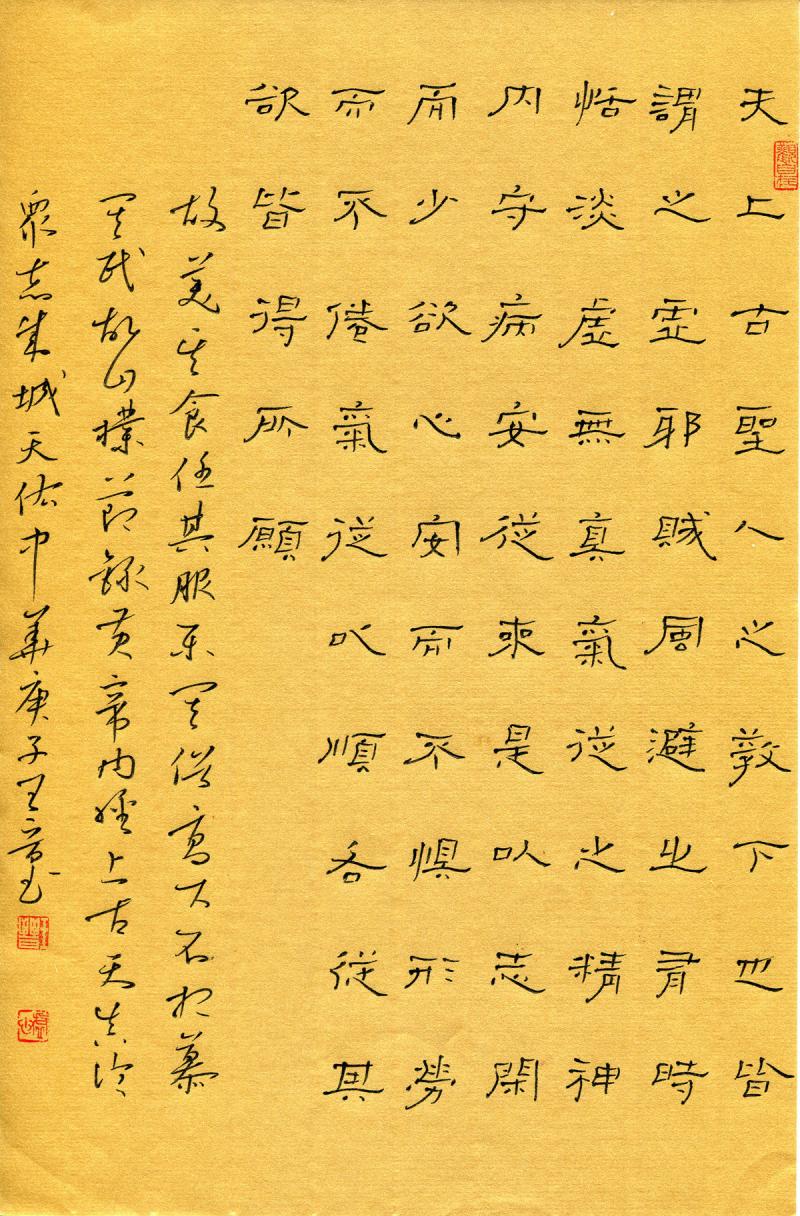 夫上古聖人之教下也皆
謂之虛邪賊風避之有時
恬淡虛無真氣從之精神
内守病安從來是以志閑
而少欲心安而不惧形勞
而不倦氣從以順各從其
欲皆得所願
故美其食任其服樂其俗高下不相慕
其民故曰樸節錄黃帝内經上古天真論
眾志成城天佑中華庚子王